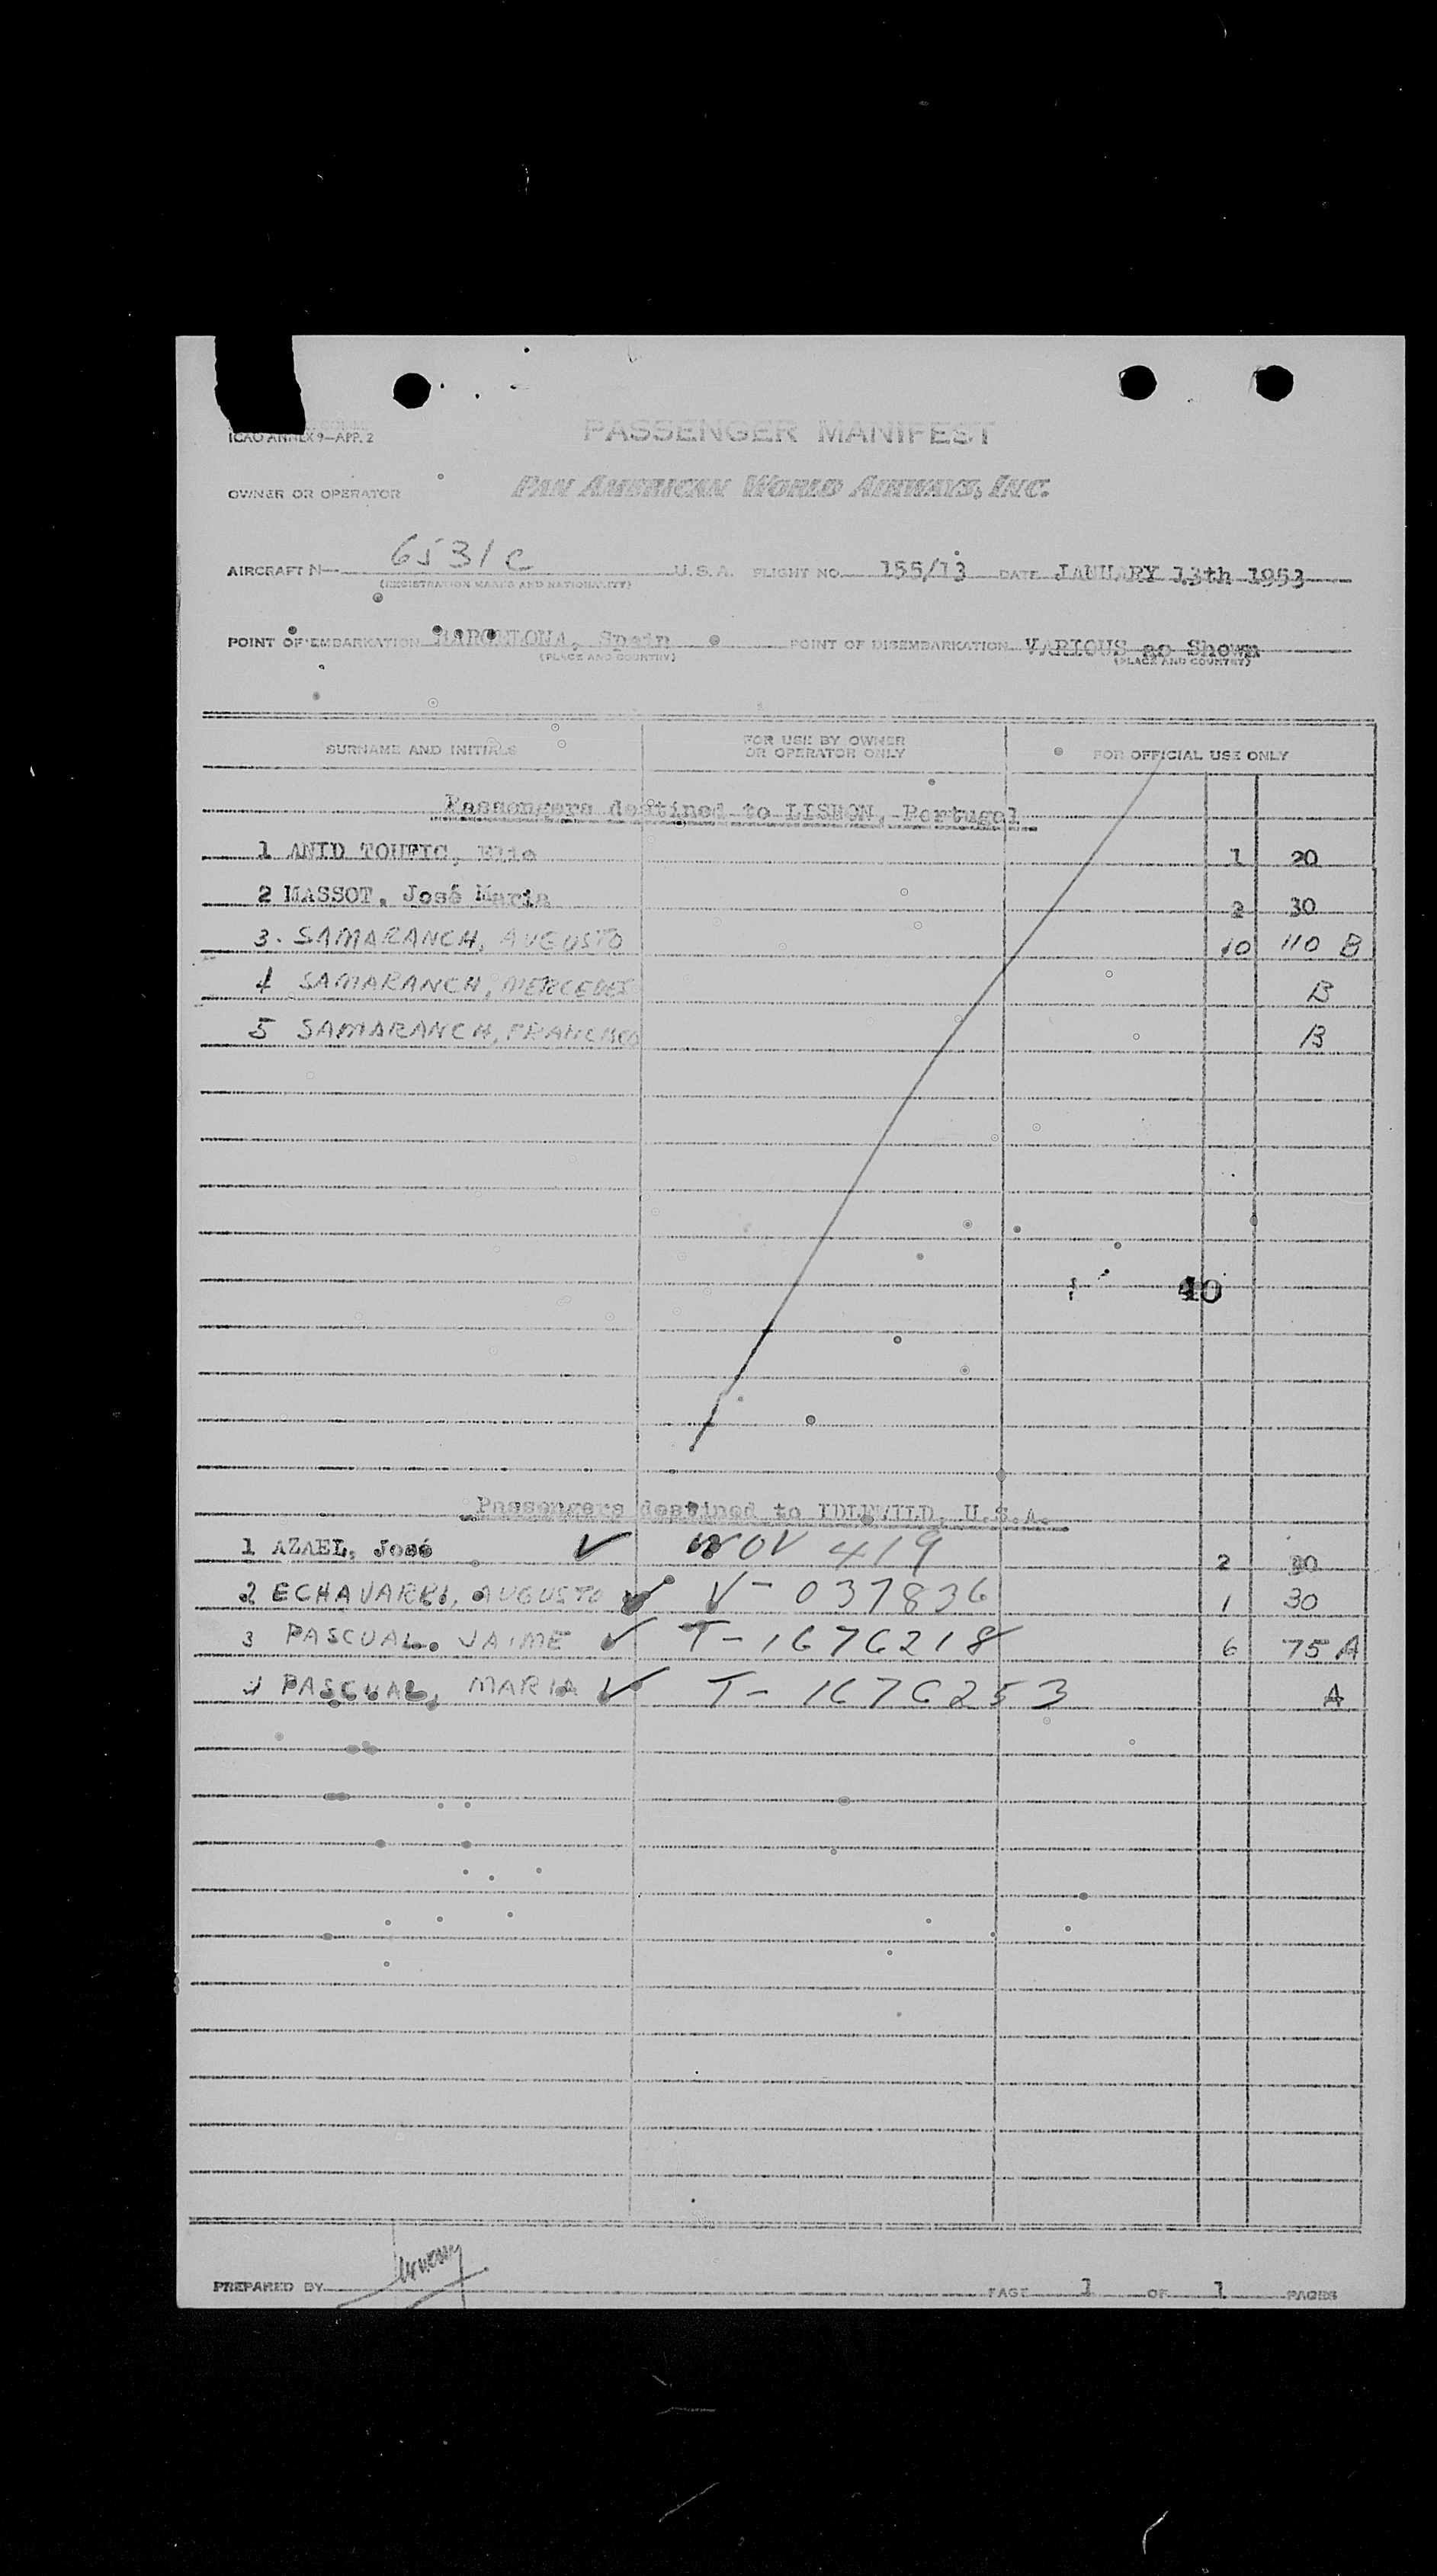 ICAO ANNEX 9—APP. 2
PASSENGER MANIFEST
OWNER OR OPERATOR PAN AMERICAN WORLD AIRWAYS, INC.
AIRCRAFT N— 6531C U.S.A. FLIGHT NO. 155/13 DATE JANUARY 13th 1953
(REGISTRATION MARKS AND NATIONALITY)
POINT OF EMBARKATION BARCELONA, Spain POINT OF DISEMBARKATION VARIOUS as Shown
(PLACE AND COUNTRY) (PLACE AND COUNTRY)
SURNAME AND INITIALS FOR USE BY OWNER OR OPERATOR ONLY FOR OFFICIAL USE ONLY
Passengers destined to LISBON, Portugal
1 ANID TOUFIC, Elie 1 20
2 MASSOT, José Maria 2 30
3. SAMARANCH, AUGUSTO 10 110 B
4 SAMARANCH, MERCEDES B
5 SAMARANCH, FRANCISCO B
40
Passengers destined to IDLEWILD, U.S.A.
1 AZAEL, José ✓ 419 2 30
2 ECHAVARRI, AUGUSTO ✓ V-037836 1 30
3 PASCUAL. JAIME ✓ T-1676218 6 75 A
4 PASCUAL, MARIA ✓ T-1676253 A
PREPARED BY PAGE 1 OF 1 PAGES